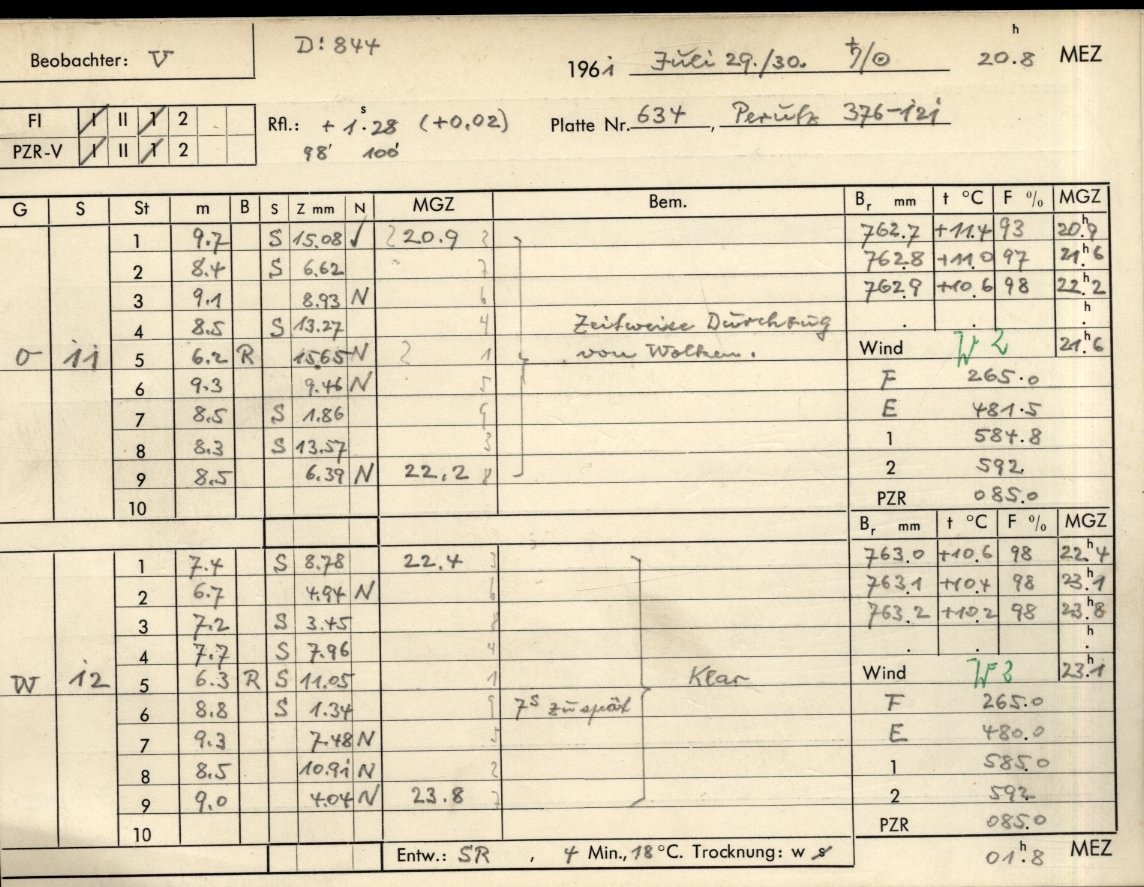 Beobachter: V D: 844 1961 Juli 29./30. ♄/☉ 20.8 h MEZ
FI I II 1 2 Rfl.: + 1.28 s (+0,02) Platte Nr. 634, Perutz 376-121
PZR-V I II 1 2 98' 100'
G S St m B S Z mm N MGZ Bem. Br mm t °C F % MGZ
1 9.7 S 15.08 √ 20.9 2 762.7 +11.4 93 20.9 h
2 8.4 S 6.62 7 762.8 +11.0 97 21.6 h
3 9.1 8.93 N 6 762.9 +10.6 98 22.2 h
4 8.5 S 13.27 4 Zeitweise Durchzug . . h .
O 11 5 6.2 R 15.65 N 1 von Wolken. Wind W 2 21.6 h
6 9.3 9.46 N 5 F 265.0
7 8.5 S 1.86 9 E 481.5
8 8.3 S 13.57 3 1 584.8
9 8.5 6.39 N 22.2 8 2 592
10 PZR 085.0
Br mm t °C F % MGZ
1 7.4 S 8.78 22.4 3 763.0 +10.6 98 22.4 h
2 6.7 4.94 N 6 763.1 +10.4 98 23.1 h
3 7.2 S 3.45 8 763.2 +10.2 98 23.8 h
4 7.7 S 7.96 4 . . h .
W 12 5 6.3 R S 11.05 1 Klar Wind W 3 23.1 h
6 8.8 S 1.34 9 7s zu spät F 265.0
7 9.3 7.48 N 5 E 480.0
8 8.5 10.91 N 2 1 585.0
9 9.0 4.04 N 23.8 7 2 592
10 PZR 085.0
Entw.: SR , 4 Min., 18 °C. Trocknung: w s 01.8 h MEZ